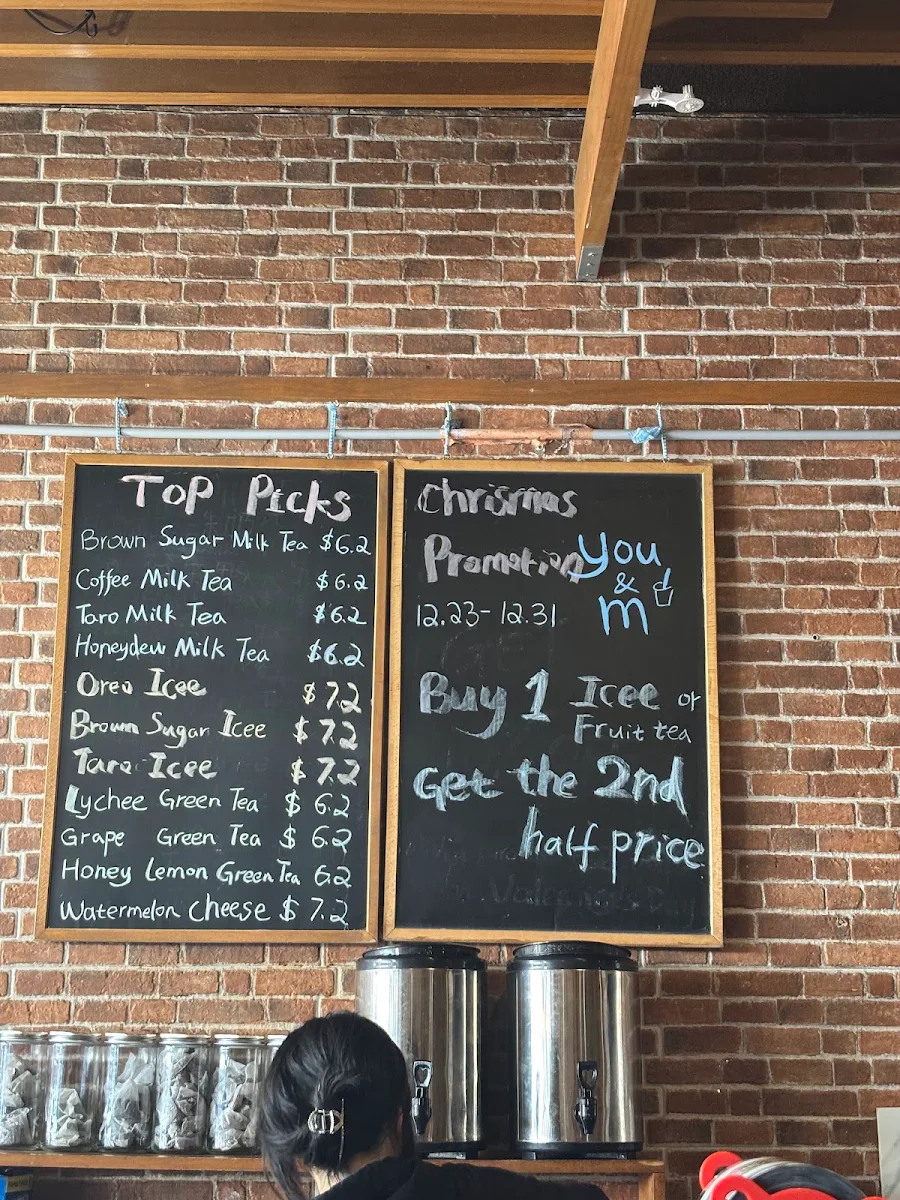 Top Picks
Brown Sugar Milk Tea $6.2
Coffee Milk Tea $6.2
Taro Milk Tea $6.2
Honeydew Milk Tea $6.2
Oreo Icee $7.2
Brown Sugar Icee $7.2
Taro Icee $7.2
Lychee Green Tea $6.2
Grape Green Tea $6.2
Honey Lemon Green Tea 6.2
Watermelon Cheese $7.2
Chrismas
Promotion
you
&
m
12.23-12.31
Buy 1 Icee or
Fruit tea
Get the 2nd
half price